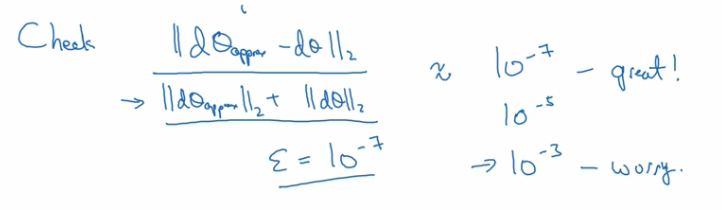 Check ‖dθapprox - dθ‖₂
→ ‖dθapprox‖₂ + ‖dθ‖₂
ε = 10⁻⁷
≈ 10⁻⁷ - great!
10⁻⁵
→ 10⁻³ - worry.